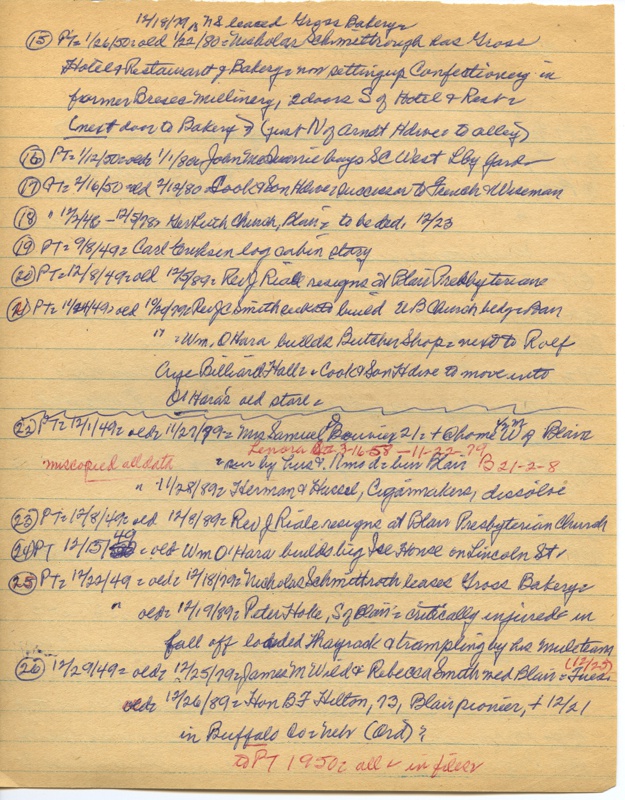 12/18/79 NS leased Gross Bakery=
(15) PT= 1/26/50= old 1/22/80= Nicholas Schmittrough has Gross
Hotel & Restaurant & Bakery= now setting up Confectionery in
former Bresee Millinery, 2 doors S of Hotel & Rest=
(next door to Bakery?) (just N of Arndt Hdwe to alley)
(16) PT= 1/12/50= old= 1/1/80= John buys SC West
(17) PT= 2/16/50 = old 2/12/80 Cook & Son Hdwe= successor to French & Wiseman
(18) " 12/2/48 - 12/5/78= Church, Blair= to be ded. 12/23
(19) PT= 9/8/49= Carl Eriksen log cabin story
(20) PT= 12/8/49= old 12/5/89= Rev J Riale resigns at Blair Presbyterians
(21) PT= 11/24/49= old 10/29/79= Rev JC Smith build UB Church
" = Wm. O'Hara builds Butcher Shop= next to Rolf
Billiard Hall= & Cook & Son Hdwe to move into
O'Hara's old store=
(22) PT= 12/1/49= old= 11/27/79= Mrs Samuel 21= + @ home W of Blair
Lenora B 2-3-16-58 – 11-22-79
miscopied all data = sur by Hus & 11 mo d= bur Blair B 21-2-8
" 11/28/89= Herman & Hassel, Cigarmakers, dissolve
(23) PT= 12/8/49= old 12/8/89= Rev J Riale resigns at Blair Presbyterian Church
(24) PT 12/15/49 = old Wm O'Hara builds big Ice House on Lincoln St.
(25) PT= 12/22/49 = old= 12/18/79= Nicholas Schmittroth leases Gross Bakery=
" old= 12/19/89= Peter Hole, S of Blair= critically injured in
fall off loaded & trampling by his mule team
(26) 12/29/49= old= 12/25/79= James M Wild & Rebecca Smith wed Blair= Tues. (12/23)
old= 12/26/89= Hon BF Hilton, 73, Blair pioneer, + 12/21
in Buffalo Co= Nebr (Ord)?
to PT 1950= all in files